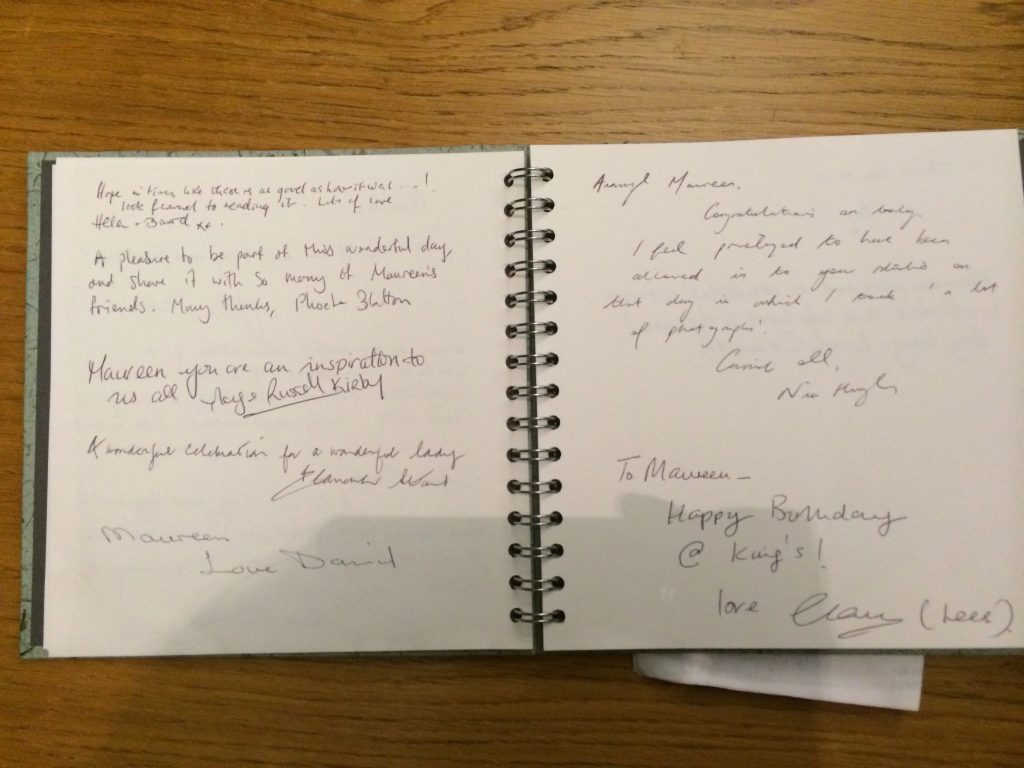 Hope in times like these is as good as how it was ....!
look forward to reading it. Lots of love
Helen + David xx.
A pleasure to be part of this wonderful day
and share it with so many of Maureen's
friends. Many thanks, Phoebe
Maureen you are an inspiration to
us all Russell Kirby
A wonderful celebration for a wonderful lady
Maureen
Love David
Maureen.
Congratulations on today.
I feel privileged to have been
allowed in to your studio on
that day in which I took 'a lot
of photographs'.
all,
To Maureen -
Happy Birthday
@ King's!
love (Lees)